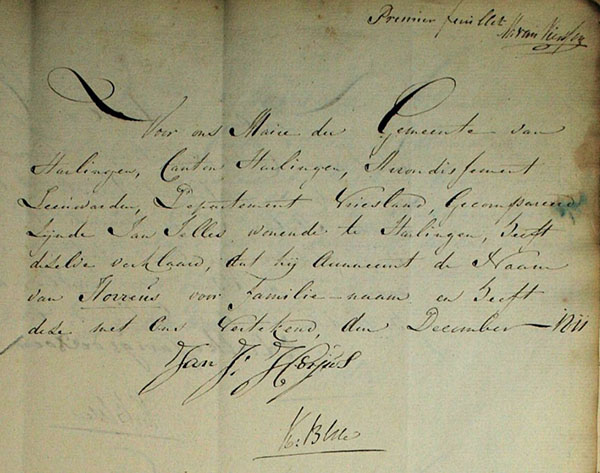 Premier feuillet
Voor ons Maire der Gemeente van
Harlingen, Canton Harlingen, Arrondissement
Leeuwarden, Departement Vriesland, Gecompareerd
zijnde Jan Jelles wonende te Harlingen, heeft
dezelve verklaard, dat hij Aanneemt de Naam
van Norreus voor Familie-naam en heeft
deze met Ons Vertekend, den December 1811
Jan J: